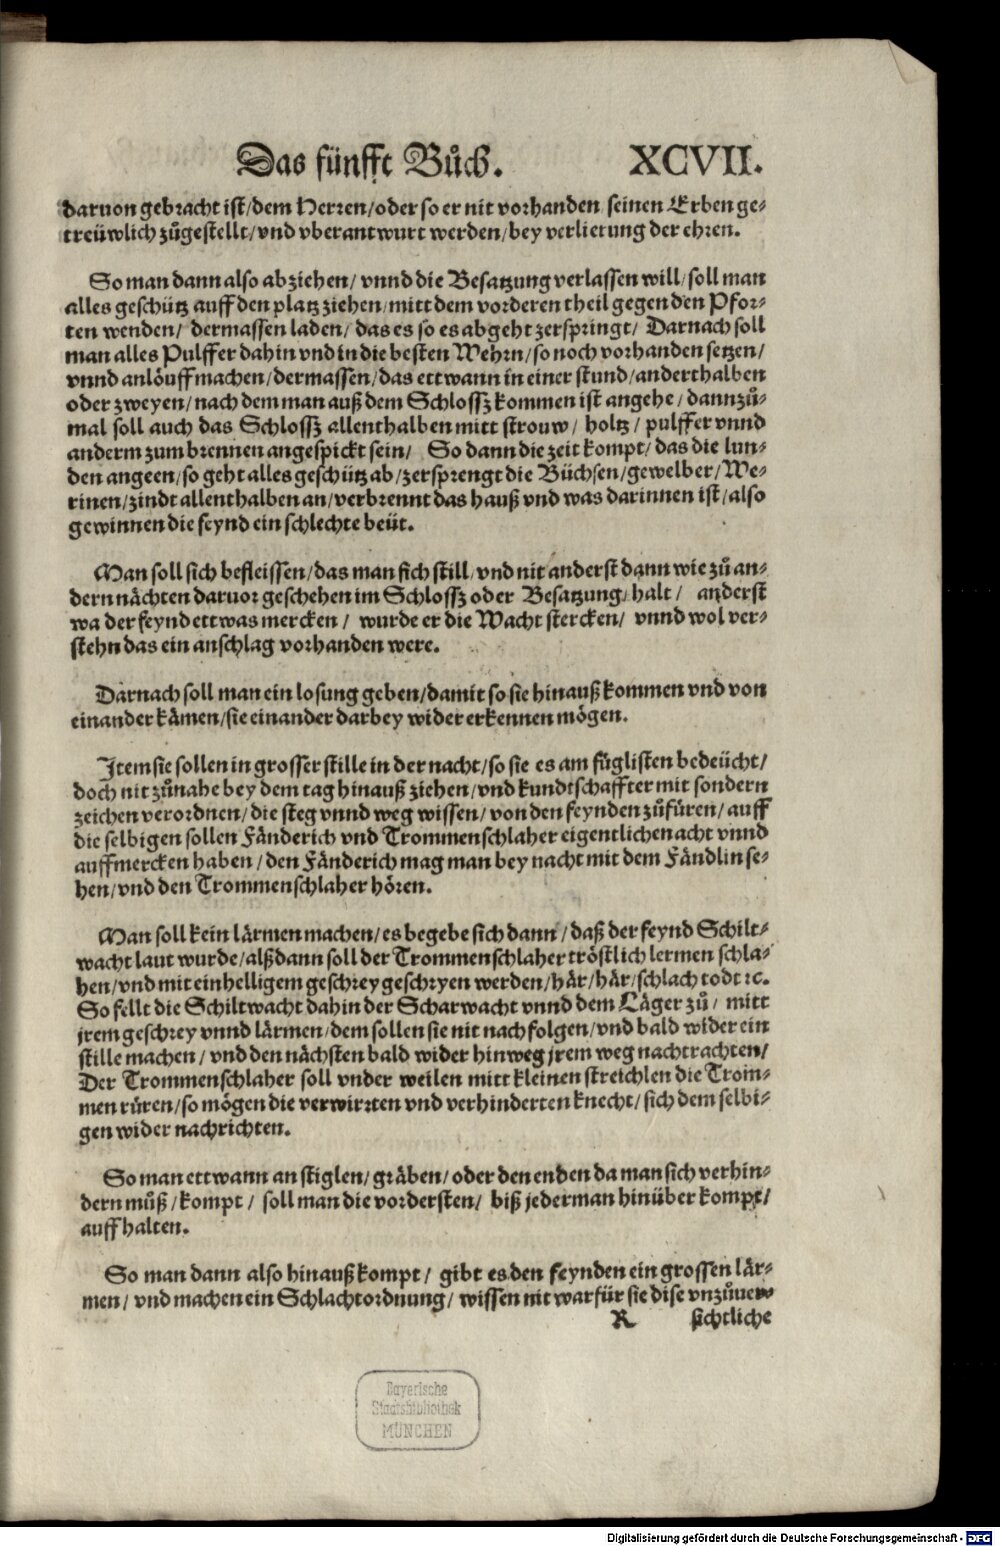 Das fünfft Bůch. XCVII.
daruon gebracht ist/dem Herren/oder so er nit vorhanden seinen Erben ge-
treüwlich zůgestellt/vnd vberantwurt werden/bey verlierung der ehren.
So man dann also abziehen/ vnnd die Besatzung verlassen will/ soll man
alles geschütz auff den platz ziehen/ mitt dem vorderen theil gegen den Pfor-
ten wenden/ dermassen laden/ das es so es abgeht zerspringt/ Darnach soll
man alles Pulffer dahin vnd in die besten Wehrn/so noch vorhanden setzen/
vnnd anlöuff machen/dermassen/das ettwann in einer stund/anderthalben
oder zweyen/nach dem man auß dem Schlossz kommen ist angehe/dannzů-
mal soll auch das Schlossz allenthalben mitt strouw/ holtz/ pulffer vnnd
anderm zum brennen angespickt sein/ So dann die zeit kompt/das die lun-
den angeen/so geht alles geschütz ab/zersprengt die Büchsen/gewelber/We-
rinen/zindt allenthalben an/verbrennt das hauß vnd was darinnen ist/also
gewinnen die feynd ein schlechte beüt.
Man soll sich befleissen/das man sich still/vnd nit anderst dann wie zů an-
dern nächten daruor geschehen im Schlossz oder Besatzung/halt/ anderst
wa der feynd ettwas mercken/ wurde er die Wacht stercken/ vnnd wol ver-
stehn das ein anschlag vorhanden were.
Darnach soll man ein losung geben/damit so sie hinauß kommen vnd von
einander kämen/sie einander darbey wider erkennen mögen.
Item sie sollen in grosser stille in der nacht/so sie es am füglisten bedeücht/
doch nit zůnahe bey dem tag hinauß ziehen/vnd kundtschaffter mit sondern
zeichen verordnen/die steg vnnd weg wissen/von den feynden zůfüren/auff
die selbigen sollen Fänderich vnd Trommenschlaher eigentlichen acht vnnd
auffmercken haben/den Fänderich mag man bey nacht mit dem Fändlin se-
hen/vnd den Trommenschlaher hören.
Man soll kein lärmen machen/es begebe sich dann/daß der feynd Schilt-
wacht laut wurde/alßdann soll der Trommenschlaher tröstlich lermen schla-
hen/vnd mit einhelligem geschrey geschryen werden/här/här/schlach todt ꝛc.
So fellt die Schiltwacht dahin der Scharwacht vnnd dem Läger zů/ mitt
jrem geschrey vnnd lärmen/dem sollen sie nit nachfolgen/vnd bald wider ein
stille machen/vnd den nächsten bald wider hinweg jrem weg nachtrachten/
Der Trommenschlaher soll vnder weilen mitt kleinen streichlen die Trom-
men rüren/so mögen die verwirrten vnd verhinderten knecht/sich dem selbi-
gen wider nachrichten.
So man ettwann an stiglen/gräben/oder den enden da man sich verhin-
dern můß/kompt/ soll man die vordersten/ biß jederman hinüber kompt/
auffhalten.
So man dann also hinauß kompt/ gibt es den feynden ein grossen lär-
men/vnd machen ein Schlachtordnung/ wissen nit warfür sie dise vnzůuer-
R sichtliche
Bayerische
Staatsbibliothek
MÜNCHEN
Digitalisierung gefördert durch die Deutsche Forschungsgemeinschaft - DFG